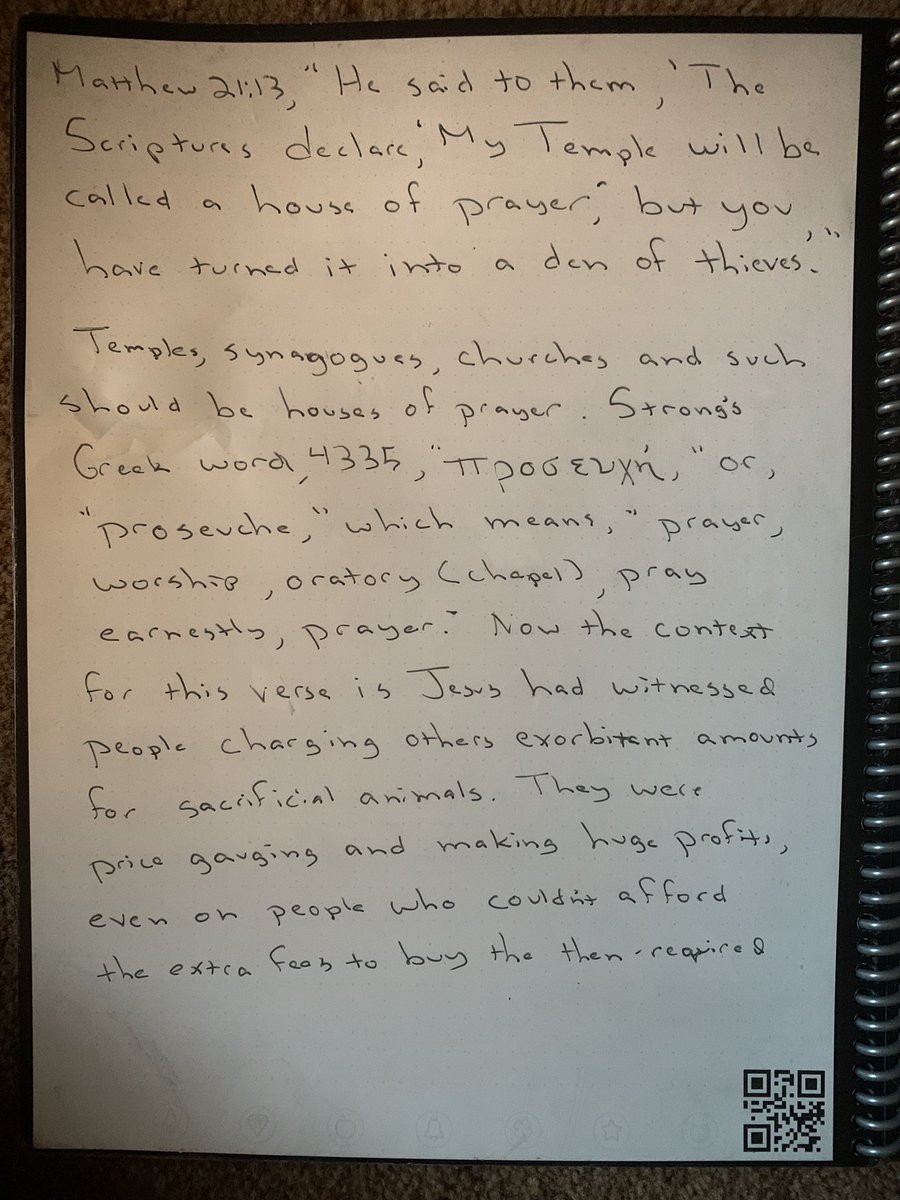 Matthew 21:13, "He said to them, 'The
Scriptures declare, 'My Temple will be
called a house of prayer,' but you
have turned it into a den of thieves.'"
Temples, synagogues, churches and such
should be houses of prayer. Strong's
Greek word, 4335, "προσευχή," or,
"proseuche," which means, "prayer,
worship, oratory (chapel), pray
earnestly, prayer." Now the context
for this verse is Jesus had witnessed
people charging others exorbitant amounts
for sacrificial animals. They were
price gauging and making huge profits,
even on people who couldn't afford
the extra fees to buy the then-required